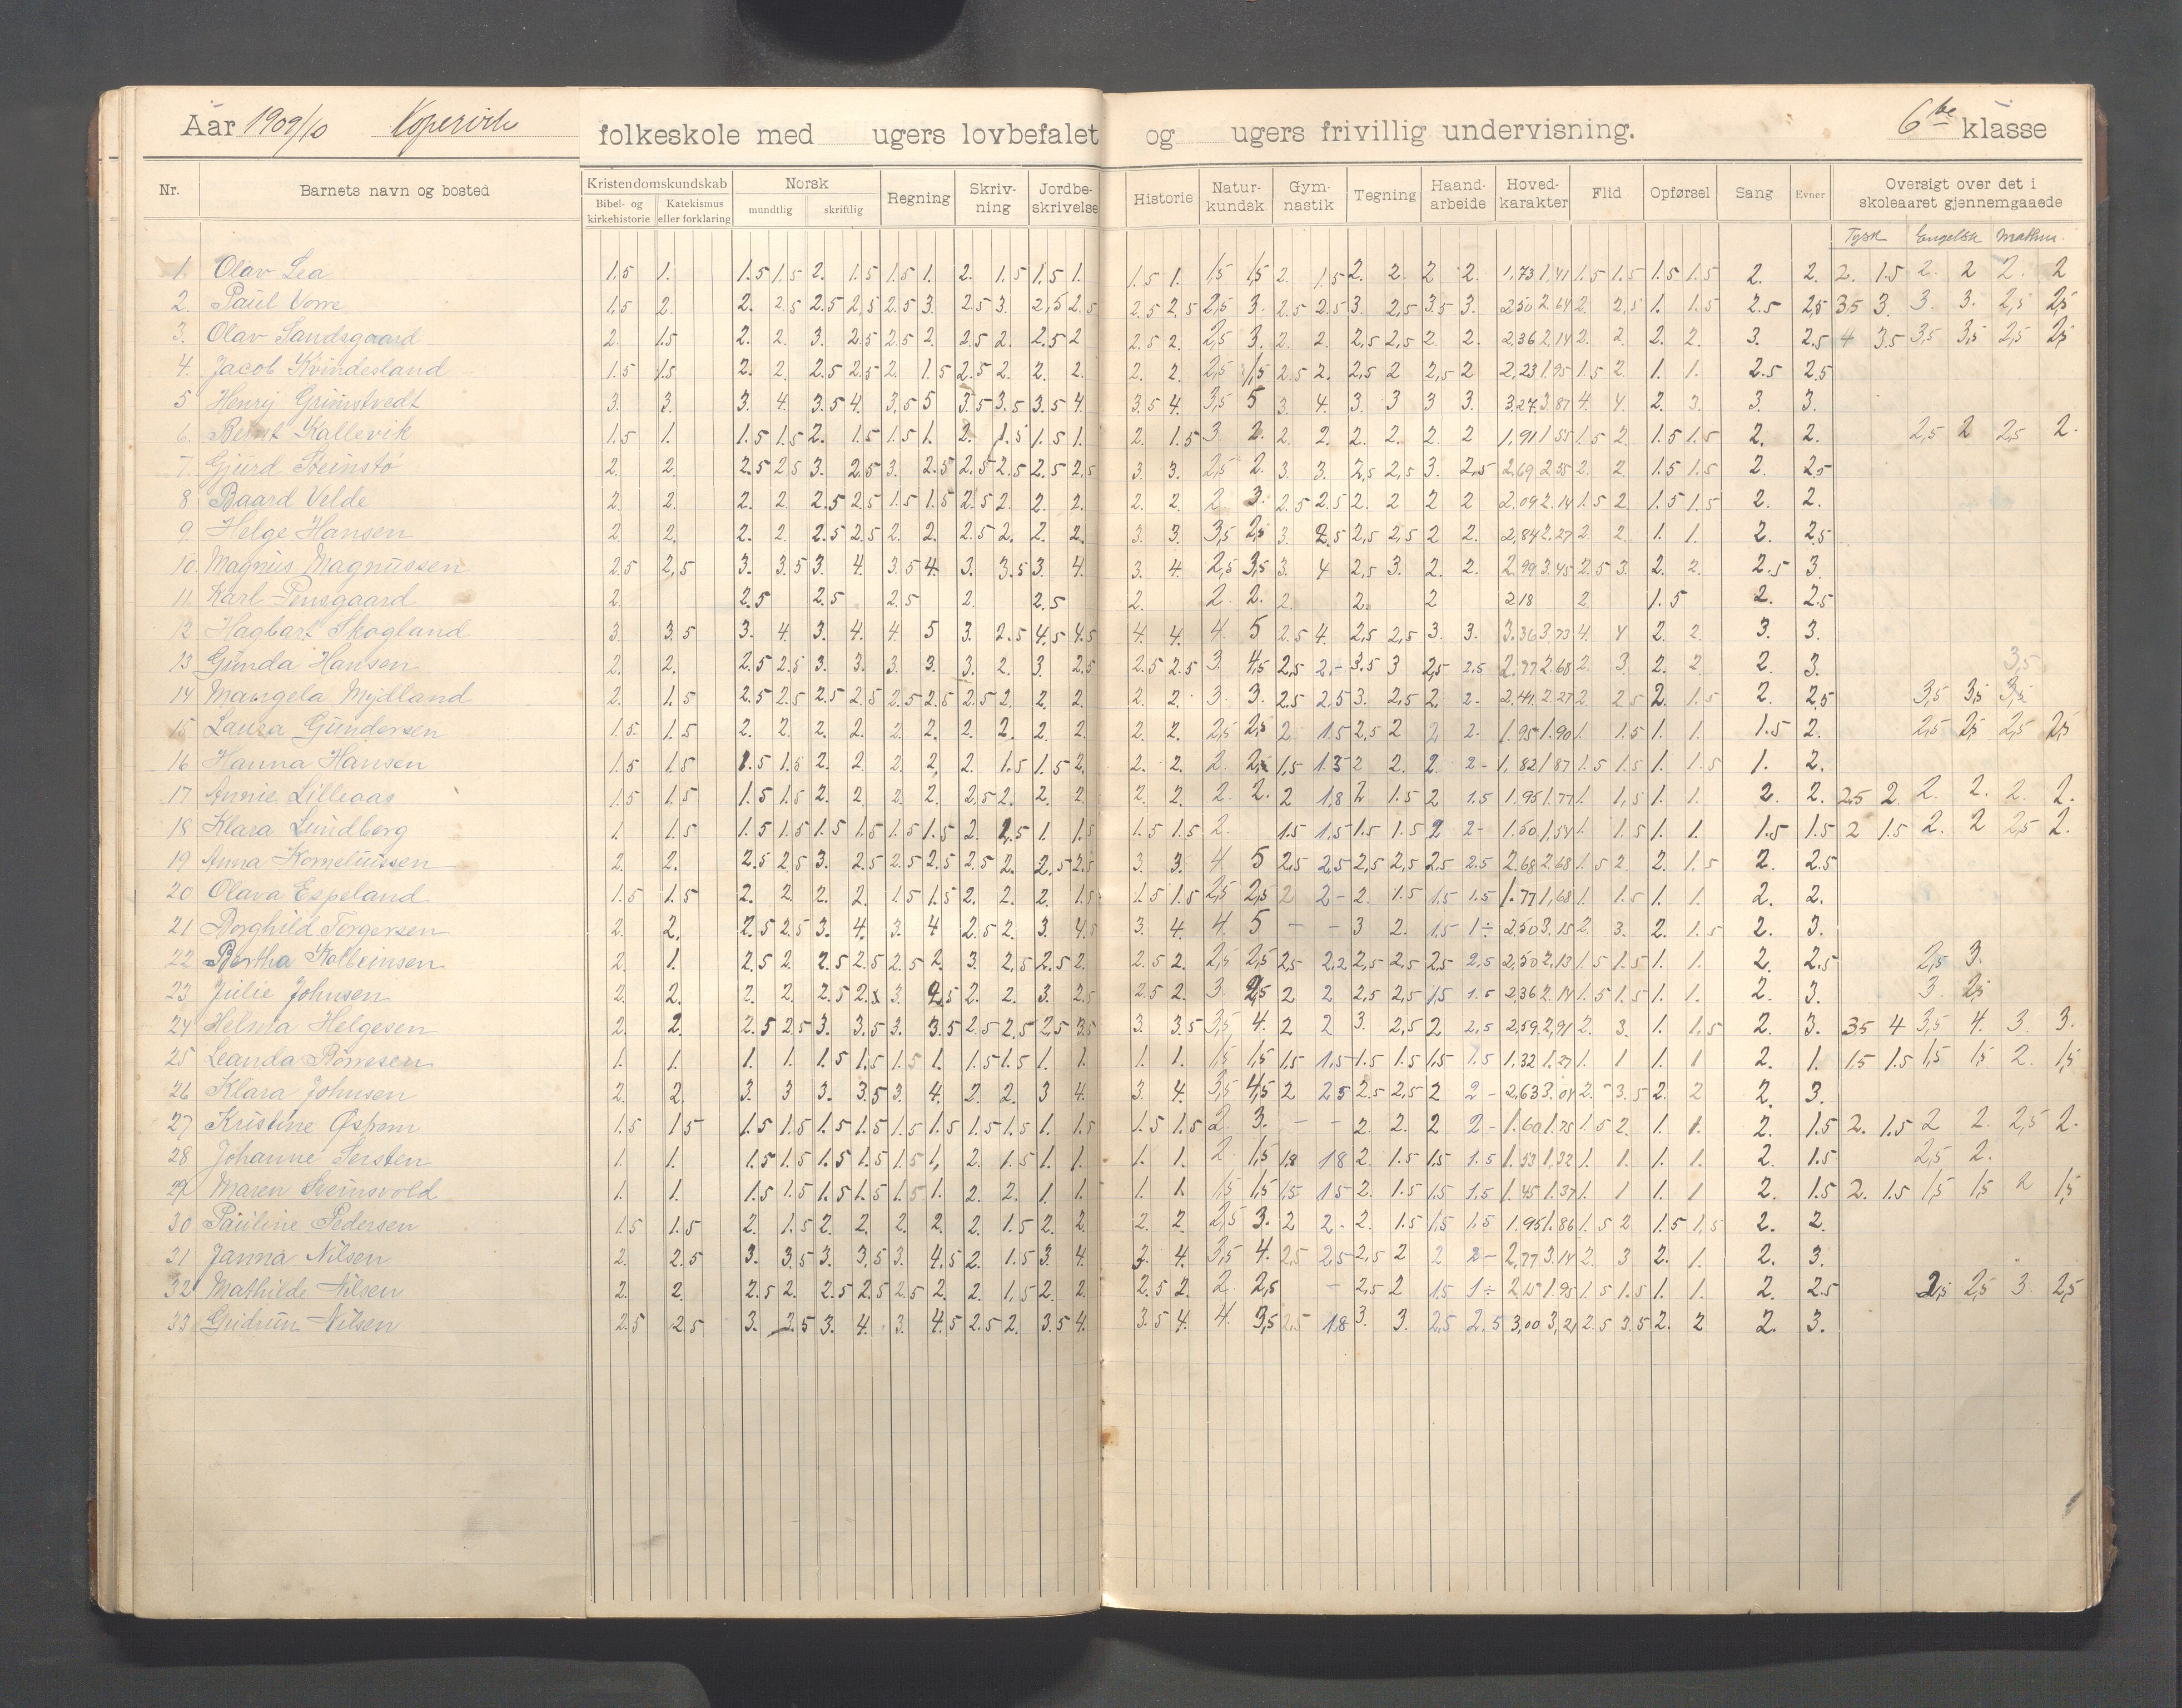 Aar 1909/10 Kopervik folkeskole med ugers lovbefalet og ugers frivillig undervisning. 6te klasse
Nr. Barnets navn og bosted Kristendomskundskab Norsk Regning Skriv-ning Jordbe-skrivelse Historie Natur-kundsk Gym-nastik Tegning Haand-arbeide Hoved-karakter Flid Opførsel Sang Evner Oversigt over det i skoleaaret gjennemgaaede
Bibel- og kirkehistorie Katekismus eller forklaring mundtlig skriftlig
Tysk Engelsk Mathm.
1. Olav Lea 1.5 1. 1.5 1.5 2. 1.5 1.5 1. 2. 1.5 1.5 1. 1.5 1. 1,5 1,5 2. 1.5 2. 2. 2 2. 1,73 1,41 1.5 1.5 1.5 1.5 2. 2. 2. 1.5 2. 2 2. 2
2. Paul Vorre 1.5 2. 2. 2.5 2.5 2.5 2.5 3. 2.5 3. 2,5 2.5 2.5 2.5 2,5 3. 2.5 2.5 3. 2,5 3.5 3. 2.50 2.64 2. 2,5 1. 1.5 2.5 2,5 3.5 3. 3. 3. 2,5 2,5
3. Olav Sandsgaard 2. 1.5 2. 2. 3. 2.5 2.5 2. 2.5 2. 2.5 2 2.5 2. 2,5 3. 2. 2. 2,5 2,5 2. 2. 2,36 2,14 2. 2. 2. 2. 3. 2.5 4 3.5 3,5 3,5 2,5 2,5
4. Jacob Kvindesland 1.5 1.5 2. 2. 2.5 2.5 2. 1.5 2.5 2. 2. 2. 2. 2. 2,5 1,5 2.5 2. 2,5 2 2,5 2 2,23 1.95 1.5 2 1. 1. 2.5 2.5
5 Henry Grimstvedt 3. 3. 3. 4. 3.5 4. 3.5 5 3.5 3.5 3.5 4. 3.5 4. 3,5 5 3. 4. 3. 3 3 3. 3,27 3,87 4. 4. 2. 3. 3. 3.
6. Bernt Kallevik 1.5 1. 1.5 1.5 2. 1.5 1.5 1. 2. 1.5 1.5 1. 2. 1.5 3. 2. 2. 2. 2. 2. 2. 2 1,91 1.55 1.5 2. 1.5 1.5 2. 2. 2,5 2 2,5 2.
7. Gjurd Steinstø 2. 2. 2.5 2.5 3. 2.5 3. 2.5 2.5 2.5 2.5 2.5 3. 3. 2,5 2. 3. 3. 2,5 2,5 3. 2,5 2,69 2.55 2. 2 1.5 1.5 2. 2.5
8 Baard Velde 2. 2. 2. 2. 2.5 2.5 1.5 1.5 2.5 2. 2. 2. 2. 2. 2 3. 2.5 2.5 2. 2 2 2 2,09 2.14 1.5 2 1.5 1.5 2. 2.
9. Helge Hansen 2. 2. 2. 2. 2.5 2.5 2. 2. 2.5 2. 2. 2. 3. 3. 3,5 2,5 3. 2.5 2,5 2,5 2 2. 2,84 2.27 2. 2. 1. 1. 2. 2.5
10. Magnus Magnussen 2.5 2,5 3. 3.5 3. 4. 3.5 4. 3. 3.5 3. 4. 3. 4. 2,5 3,5 3. 4 2,5 3. 2. 2. 2,99 3.45 2.5 3. 2. 2. 2.5 3.
11. Karl Pensgaard 2. 2.5 2.5 2.5 2. 2.5 2. 2. 2. 2. 2. 2 2.18 2. 1.5 2. 2.5
12 Hagbart Skogland 3. 3.5 3. 4. 3. 4. 4. 5 3. 2.5 4.5 4.5 4. 4. 4. 5 2.5 4. 2,5 2,5 3. 3. 3.36 3,73 4. 4 2. 2. 3. 3.
13 Gunda Hansen 2. 2. 2.5 2.5 3. 3. 3. 3. 3. 2. 3. 2.5 2.5 2.5 3. 4,5 2,5 2- 3.5 3 2,5 2.5 2.77 2.68 2. 3 2. 2 2. 3. 3,5
14 Mangela Mydland 2. 1.5 2.5 2.5 2.5 2.5 2.5 2.5 2.5 2. 2. 2. 2. 2. 3. 3. 2.5 2,5 3. 2,5 2. 2- 2,41 2.27 2. 2.5 2. 1.5 2. 2.5 3,5 3,5 3,5
15 Laura Gundersen 1.5 1.5 2. 2. 2. 2. 2. 2. 2. 2. 2. 2. 2. 2. 2,5 2,5 2 1.5 2,5 2 2 2. 1.95 1.90 1. 1.5 1. 1. 1.5 2. 2,5 2,5 2,5 2,5
16 Hanna Hansen 1.5 1.5 1.5 1.5 2. 2. 2. 2. 2. 1.5 1.5 2. 2. 2. 2. 2. 1.5 1.3 2 2. 2. 2- 1,82 1,87 1.5 1.5 1. 1.5 1. 2.
17 Annie Lilleaas 1.5 1.5 1.5 1.5 2. 2. 2. 2. 2.5 2. 2. 2. 2. 2. 2. 2. 2 1,8 2 1.5 2 1.5 1.95 1.77 1. 1,5 1. 1. 2. 2. 2.5 2. 2. 2. 2. 2.
18 Klara Lundberg 1. 1.5 1.5 1.5 1.5 1.5 1.5 1.5 2. 2.5 1. 1.5 1.5 1.5 2. 1.5 1.5 1.5 1.5 2 2- 1.50 1,54 1. 1.5 1. 1. 1.5 1.5 2 1.5 2. 2 2,5 2.
19 Anna Korneliussen 2. 2. 2.5 2.5 3. 2.5 2.5 2.5 2.5 2. 2.5 2.5 3. 3. 4. 5 2,5 2,5 2,5 2,5 2,5 2.5 2.68 2.68 1.5 2. 2. 1.5 2. 2.5
20 Olava Espeland 1.5 1.5 2. 2. 2. 2. 1.5 1.5 2. 2. 2. 1.5 1.5 1.5 2,5 2,5 2 2- 2. 1.5 1.5 1.5 1.77 1,68 1. 1.5 1. 1. 2. 2.
21 Borghild Torgersen 2. 2. 2.5 2.5 3. 4. 3. 4 2.5 2. 3. 4.5 3. 4. 4. 5 - - 3 2. 1.5 1÷ 2.50 3,15 2. 3. 2. 1.5 2. 3.
22 Bertha Kolbeinsen 2. 1. 2.5 2. 2.5 2.5 2.5 2. 3. 2,5 2.5 2. 2.5 2. 2,5 2,5 2,5 2,2 2,5 2,5 2,5 2,5 2,50 2,13 1.5 1.5 1. 1. 2. 2.5 2,5 3.
23 Julie Johnsen 2. 2. 2. 2. 2.5 2. 3. 2.5 2. 2. 3. 2.5 2.5 2. 3. 2,5 2 2 2,5 2,5 1,5 1.5 2,36 2.14 1.5 1.5 1. 1. 2. 3. 3. 2,5
24 Helma Helgesen 2. 2. 2.5 2.5 3. 3.5 3. 3.5 2.5 2.5 2,5 3.5 3. 3.5 3,5 4. 2 2 3. 2,5 2 2,5 2,59 2,91 2. 3. 1. 1,5 2. 3. 3.5 4 3,5 4. 3. 3.
25 Leanda Børresen 1. 1. 1. 1. 1.5 1.5 1.5 1. 1.5 1.5 1. 1. 1. 1. 1,5 1,5 1,5 1,5 1.5 1.5 1,5 1.5 1,32 1,27 1. 1 1. 1 2. 1. 1.5 1.5 1,5 1,5 2. 1,5
26 Klara Johnsen 2. 2. 3. 3 3. 3.5 3. 4. 2. 2. 3 4. 3. 4. 3,5 4,5 2 2,5 2.5 2,5 2 2- 2,63 3.04 2. 3.5 2. 2 2. 3.
27 Kristine Øspem 1.5 1.5 1.5 1.5 1.5 1.5 1.5 1.5 1.5 1.5 1. 1.5 1.5 1.5 2. 3. - - 2. 2. 2 2- 1.60 1.75 1.5 2. 1. 1. 2. 1.5 2. 1.5 2 2. 2,5 2.
28 Johanne Sersten 1. 1. 1.5 1.5 1.5 1.5 1.5 1. 2. 1.5 1. 1. 1. 1. 2. 1,5 1,8 1,8 2. 1.5 1.5 1.5 1.53 1,32 1. 1. 1. 1. 2. 1.5 2,5 2.
29 Maren Steinsvold 1. 1. 1.5 1.5 1.5 1.5 1.5 1. 2. 2. 1. 1. 1. 1. 1,5 1,5 1,5 1.5 2. 1.5 1.5 1.5 1.45 1.37 1. 1 1. 1 2. 1.5 2. 1.5 1,5 1,5 2 1,5
30 Pauline Pedersen 1.5 1.5 2. 1.5 2. 2. 2. 2. 2. 1.5 2. 2. 2. 2. 2,5 3. 2 2- 2. 1.5 1,5 1,5 1.95 1.86 1.5 2. 1.5 1,5 2. 2.
31 Janna Nilsen 2. 2.5 3. 3.5 3. 3.5 3. 4.5 2. 1.5 3. 4. 3. 4. 3,5 4. 2,5 2,5 2,5 2 2 2- 2,77 3.14 2. 3 2. 1. 2. 3.
32 Mathilde Nilsen 2. 2. 2.5 2. 2.5 2.5 2.5 2. 2. 1,5 2. 2. 2.5 2. 2. 2,5 - 2,5 2 1.5 1÷ 2,15 1.95 1.5 1.5 1. 1. 2. 2.5 2,5 2,5 3. 2,5
33 Gudrun Nilsen 2.5 2.5 3. 2.5 3. 4. 3. 4.5 2.5 2. 3.5 4. 3.5 4. 4. 3,5 2,5 1,8 3. 3. 2,5 2.5 3,00 3,21 2.5 3.5 2. 2 2. 3.